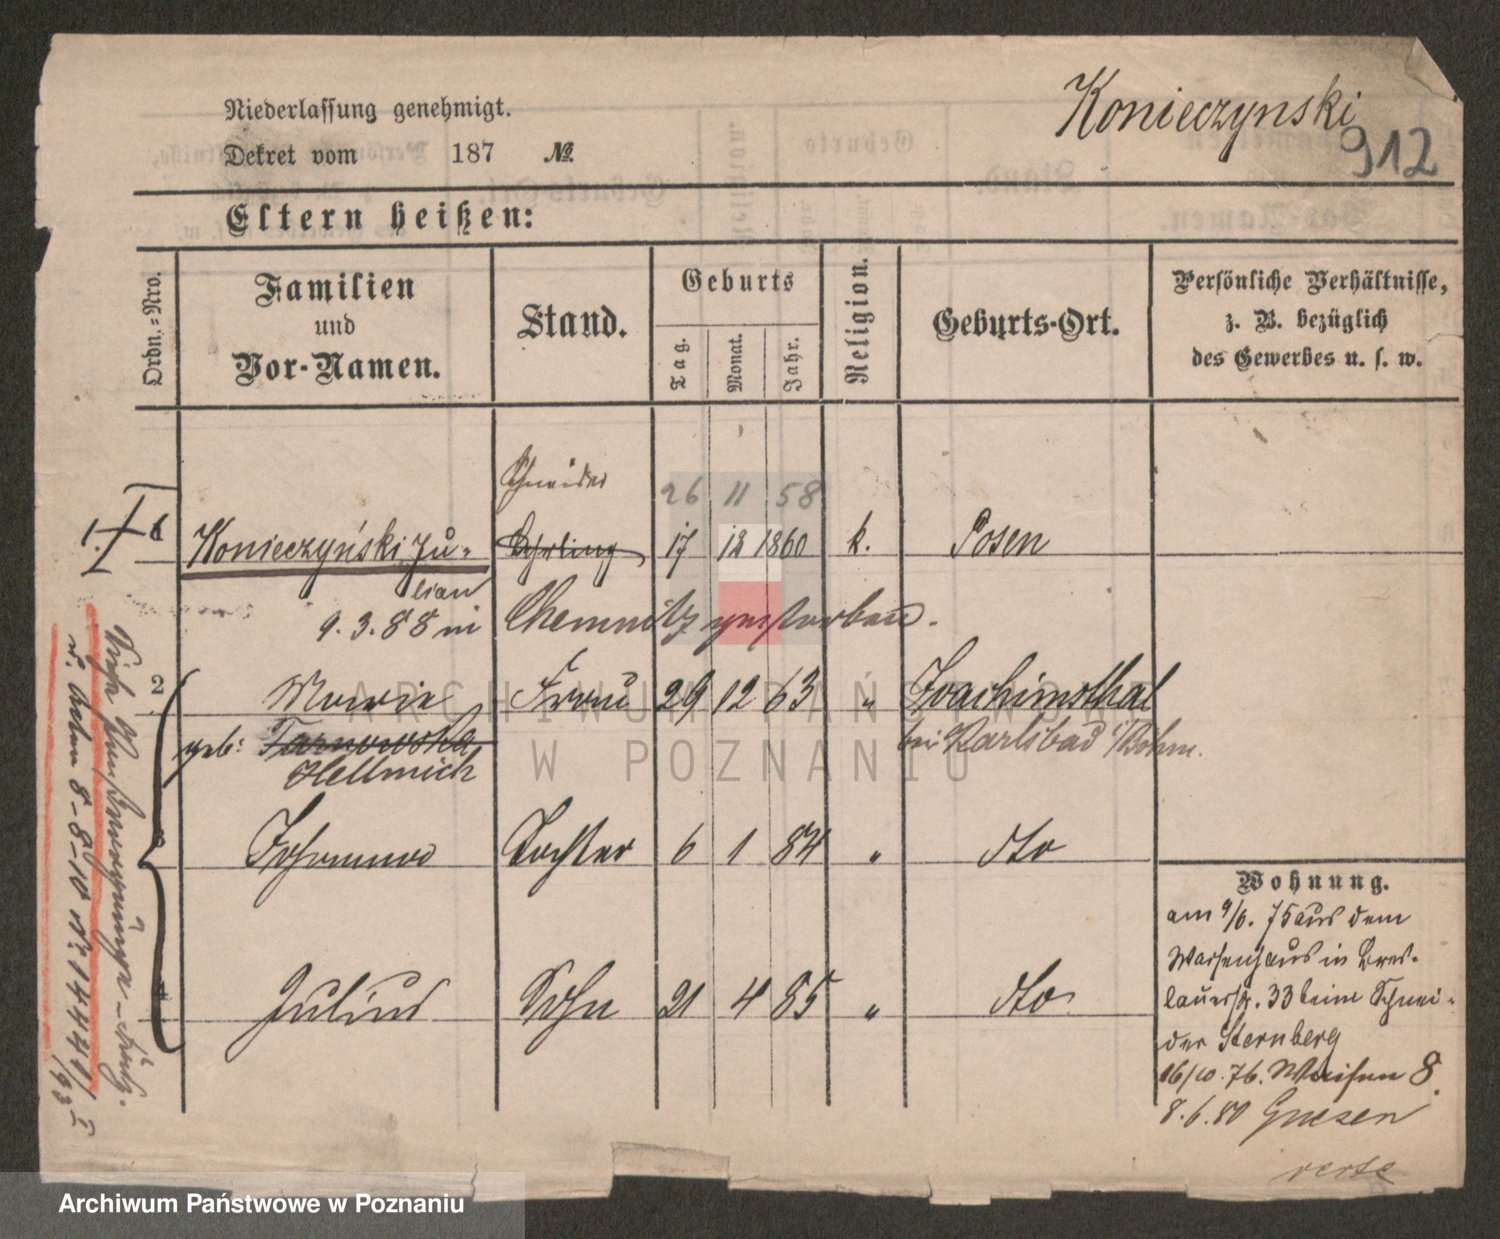 Niederlassung genehmigt.
Konieczynski
912
Dekret vom 187 №
Eltern heißen:
Ordn.=Nro.
Familien
und
Vor-Namen.
Stand.
Geburts
Tag.
Monat.
Jahr.
Religion.
Geburts-Ort.
Persönliche Verhältnisse,
z. B. bezüglich
des Gewerbes u. s. w.
Schneider 26 11 58
1. Konieczyński, Ju- Lehrling 17 12 1860 k. Posen
lian
9.3.88 in Chemnitz gestorben.
2 Marie Frau 29 12 63 " Joachimsthal
geb: Tarnowska bei Karlsbad i/Böhm.
Hellmich
3 Johanna Tochter 6 1 84 " dto
4 Julius Sohn 21 4 85 " dto
Wohnung.
am 9/6. 75 aus dem
Waisenhaus in Bres-
lauerstr. 33 beim Schnei-
der Sternberg
16/10. 76. Waisen 8.
8.6.80 Gnesen
verte
ARCHIWUM PAŃSTWOWE
W POZNANIU
Archiwum Państwowe w Poznaniu